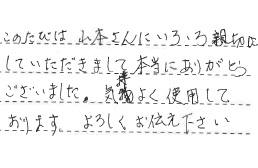 このたびは山本さんにいろいろ親切に
していただきまして本当にありがとう
ございました。気持よく使用して
おります。よろしくお伝え下さい